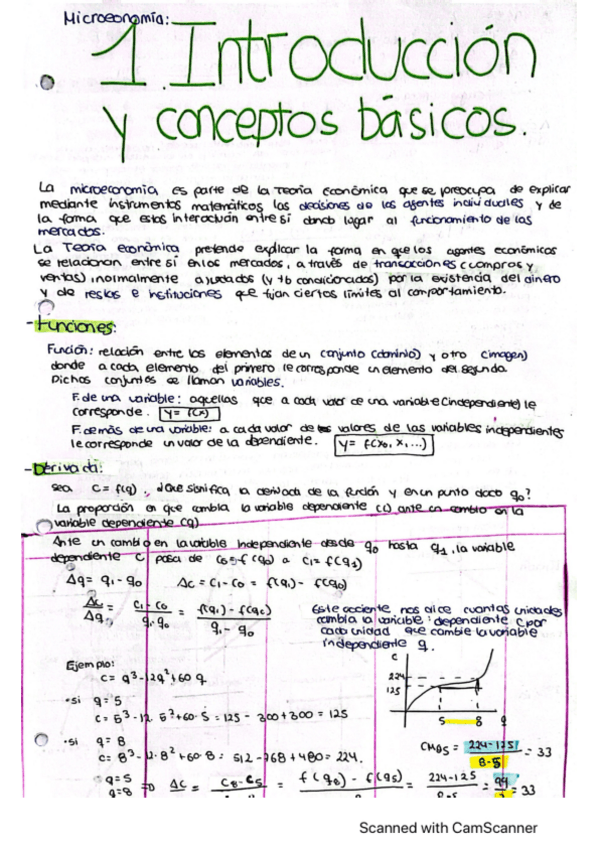 Microeconomía:
1. Introducción
y conceptos básicos.
La microeconomía es parte de la Teoría económica que se preocupa de explicar
mediante instrumentos matemáticos las decisiones de los agentes individuales y de
la forma que estos interactúan entre sí dando lugar al funcionamiento de los
mercados.
La Teoría económica pretende explicar la forma en que los agentes económicos
se relacionan entre sí en los mercados, a través de transacciones (compras y
ventas) normalmente ayudados (y tb condicionados) por la existencia del dinero
y de reglas e instituciones que fijan ciertos límites al comportamiento.
- Funciones:
Función: relación entre los elementos de un conjunto (dominio) y otro (imagen)
donde a cada elemento del primero le corresponde un elemento del segundo.
Dichos conjuntos se llaman variables.
F. de una variable: aquellas que a cada valor de una variable (independiente) le
corresponde. y = f(x)
F. de más de una variable: a cada valor de los valores de las variables independientes
le corresponde un valor de la dependiente. y = f(x₀, x, ...)
- Derivada:
sea C = f(q). ¿Que significa la derivada de la función y en un punto dado q₀?
La proporción en que cambia la variable dependiente (C) ante un cambio en la
variable dependiente (q)
Ante un cambio en la variable independiente desde q₀ hasta q₁, la variable
dependiente C pasa de C₀ = f(q₀) a C₁ = f(q₁)
Δq = q₁ - q₀ ΔC = C₁ - C₀ = f(q₁) - f(q₀)
ΔC/Δq = C₁ - C₀/q₁ - q₀ = f(q₁) - f(q₀)/q₁ - q₀
Este cociente nos dice cuantas unidades
cambia la variable dependiente C por
cada unidad que cambie la variable
independiente q.
Ejemplo:
C = q³ - 12q² + 60q
C
224
125
5 8 q
• si q = 5
C = 5³ - 12·5² + 60·5 = 125 - 300 + 300 = 125
• si q = 8
C = 8³ - 12·8² + 60·8 = 512 - 768 + 480 = 224.
CMg₅ = 224-125/8-5 = 33
q = 5
q = 8 => ΔC = C₈ - C₅ = f(q₈) - f(q₅) = 224-125/8-5 = 99/3 = 33
Scanned with CamScanner